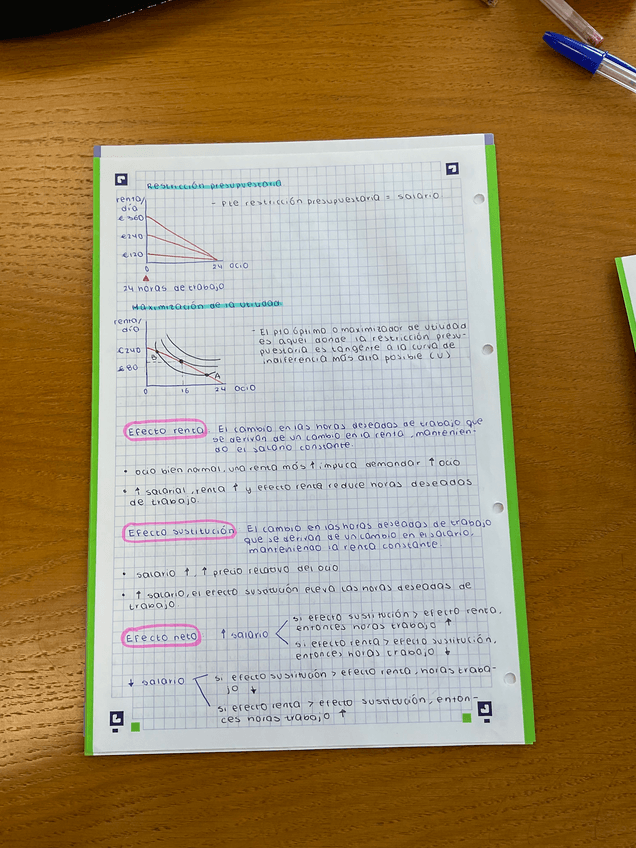 Restricción presupuestaria
renta/
día
€360
€240
€120
0
24 ocio
24 horas de trabajo
- Pte restricción presupuestaria = salario
Maximización de la utilidad
renta/
día
€240
€80
B
A
0
16
24 ocio
- El pto óptimo o maximizador de utilidad
es aquel donde la restricción presu-
puestaria es tangente a la curva de
indiferencia más alta posible (U)
Efecto renta
El cambio en las horas deseadas de trabajo que
se derivan de un cambio en la renta, mantenien-
do el salario constante.
• ocio bien normal, una renta más ↑ implica demandar ↑ ocio
• ↑ salarial, renta ↑ y efecto renta reduce horas deseadas
de trabajo.
Efecto sustitución
El cambio en las horas deseadas de trabajo
que se derivan de un cambio en el salario,
manteniendo la renta constante.
• salario ↑, ↑ precio relativo del ocio
• ↑ salario, el efecto sustitución eleva las horas deseadas de
trabajo
Efecto neto
↑ salario
si efecto sustitución > efecto renta,
entonces horas trabajo ↑
si efecto renta > efecto sustitución,
entonces horas trabajo ↓
↓ salario
si efecto sustitución > efecto renta, horas traba-
jo ↓
si efecto renta > efecto sustitución, enton-
ces horas trabajo ↑